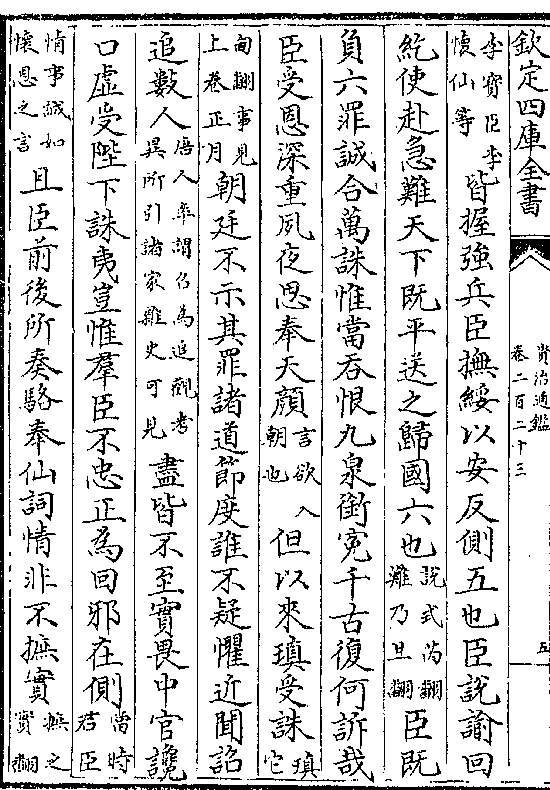 欽定四庫全書
資治通鑑
卷二百二十三
五
李寶臣李懷仙等皆握強兵臣撫綏以安反側五也臣說諭回
紇使赴急難天下既平送之歸國六也說式芮翻難乃旦翻臣既
負六罪誠合萬誅惟當吞恨九泉銜寃千古復何訴哉
臣受恩深重夙夜思奉天顔言欲入朝也但以來瑱受誅瑱它
甸翻事見上卷正月朝廷不示其罪諸道節度誰不疑懼近聞詔
追數人唐人率謂召為追觀考異所引諸家雜史可見盡皆不至實畏中官讒
口虛受陛下誅夷豈惟羣臣不忠正為回邪在側當時君臣
情事誠如懷恩之言且臣前後所奏駱奉仙詞情非不摭實摭之實翻